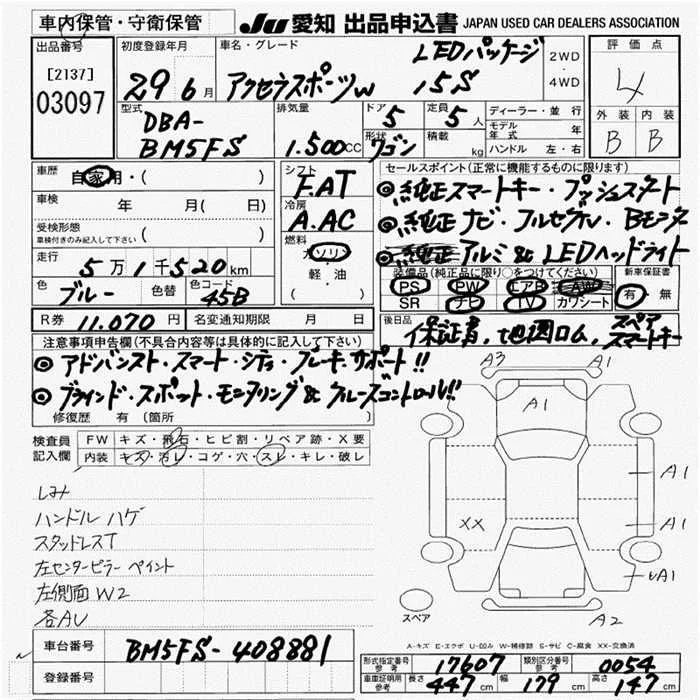 車内保管・守衛保管
JU 愛知 出品申込書 JAPAN USED CAR DEALERS ASSOCIATION
出品番号
[2137]
03097
初度登録年月
29 6月
車名・グレード
LEDパッケージ
アクセラスポーツW 15S
2WD
・
4WD
評価点
4
外装 内装
B B
型式
DBA-
BM5FS
排気量
1.500CC
ドア
5
定員
5人
形状
ワゴン
積載
kg
ディーラー・並行
モデル年式 年
ハンドル 左・右
車歴
自家用・( )
車検 年 月( 日)
受検形態
車検付きのみ記入して下さい ( )
走行
5万1千520km
色
ブルー
色替
色コード
45B
R券 11.070円
名変通知期限 月 日
シフト
F.AT
冷房
A.AC
燃料
ガソリン
・
軽・油
( )
セールスポイント(正常に機能するものに限ります)
◎純正スマートキー・プッシュスタート
◎純正ナビ・フルセグTV・Bモニタ
◎純正アルミ&LEDヘッドライト
装備品(純正品に限り○をつけてください)
PS PW エアB AW
SR ナビ TV カワシート
新車保証書
有・無
後日品
保証書、地図ROM、スペアスマートキー
注意事項申告欄(不具合内容等は具体的に記入して下さい)
◎アドバンスト・スマート・シティ・ブレーキサポート!!
◎ブラインド・スポット・モニタリング&クルーズコントロール!!
修復歴 有(箇所 )
検査員記入欄
FW キズ・飛石・ヒビ割・リペア跡・X要
内装 キズ・汚レ・コゲ・穴・スレ・キレ・破レ
しみ
ハンドルハゲ
スタッドレスT
左センターピラー ペイント
左側面W2
各AU
A3 A1
A1
A1
XX
A1
UA1
A2
スペア
A-キズ E-エクボ U-凹み W-補修跡 S-サビ C-腐食 XX-交換済
車台番号 BM5FS-408881
登録番号
形式指定番号参考 17607 類別区分番号参考 0054
車庫証明用参考 長さ 447cm 幅 179cm 高さ 147cm